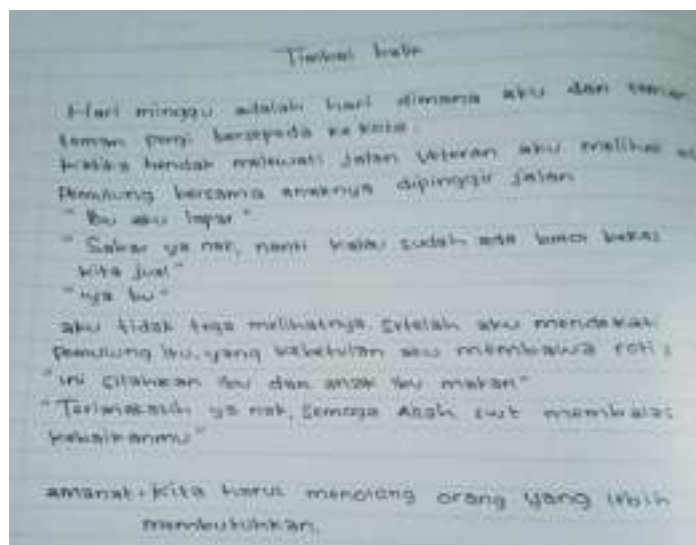 Timbal balik
Hari minggu adalah hari dimana aku dan teman
teman pergi bersepeda ke kota.
Ketika hendak melewati jalan veteran aku melihat
Pemulung bersama anaknya dipinggir jalan
"Bu aku lapar"
"Sabar ya nak, nanti kalau sudah ada botol bekas
kita jual"
"iya bu"
aku tidak tega melihatnya. Setelah aku mendekati
Pemulung itu, yang kebetulan aku membawa roti,
"ini silahkan ibu dan anak ibu makan"
"Terimakasih ya nak, Semoga Allah swt membalas
kebaikanmu"
amanat : Kita harus menolong orang yang lebih
membutuhkan.